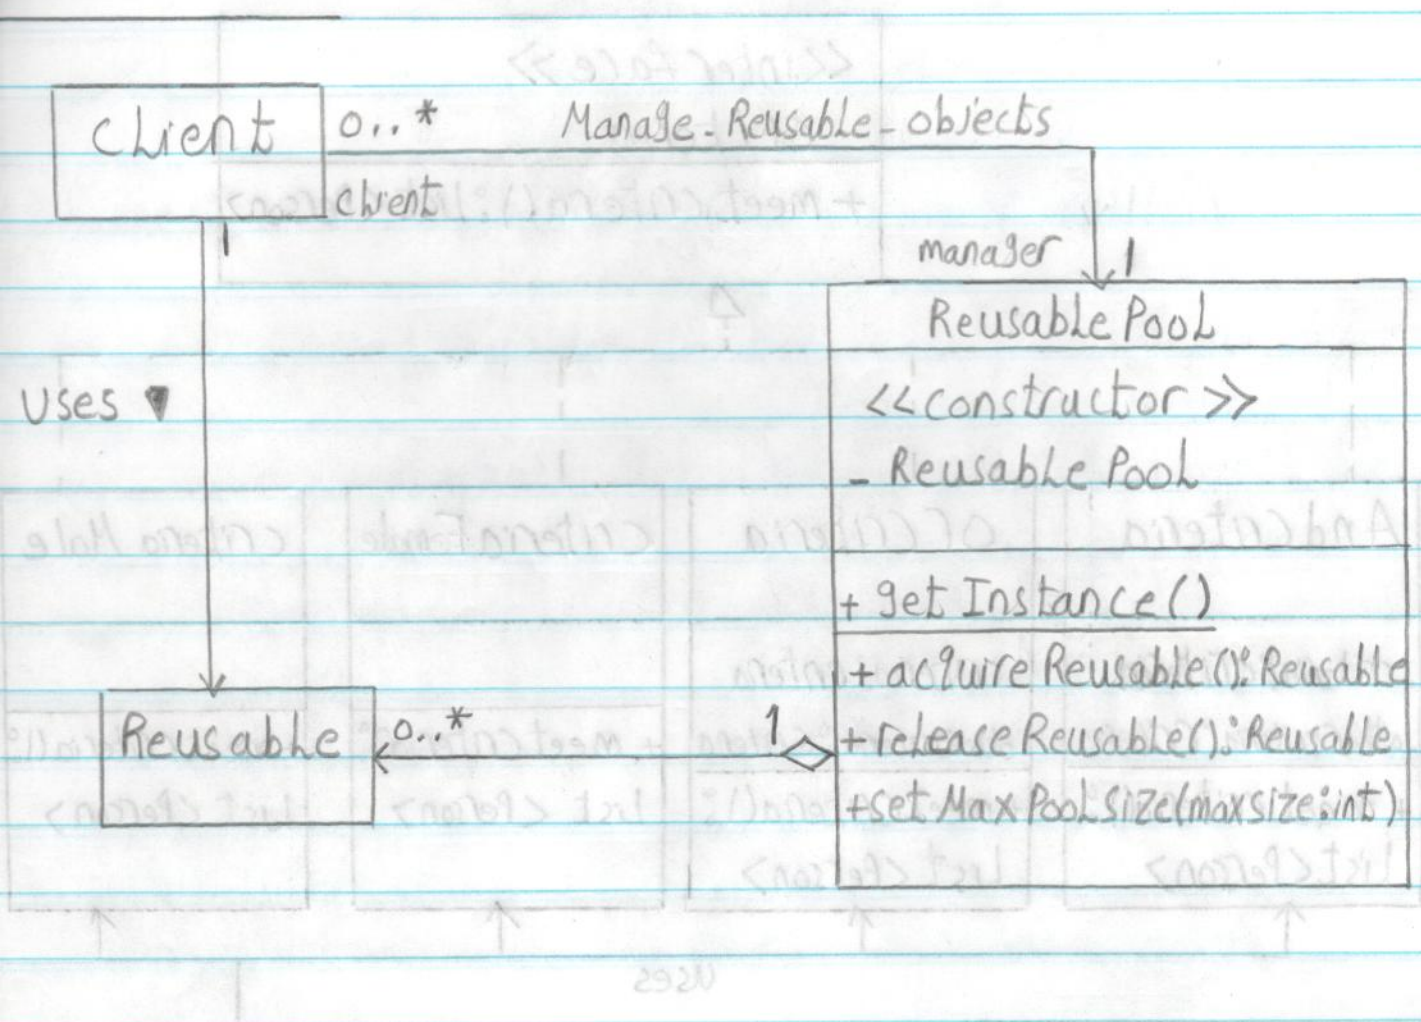 Client
0..* Manage-Reusable-objects
client
1
manager 1
Reusable Pool
<<constructor>>
- Reusable Pool
Uses ▼
+ get Instance()
+ acquire Reusable(): Reusable
+ release Reusable(): Reusable
+ set Max Pool size(maxsize:int)
Reusable
0..* 1